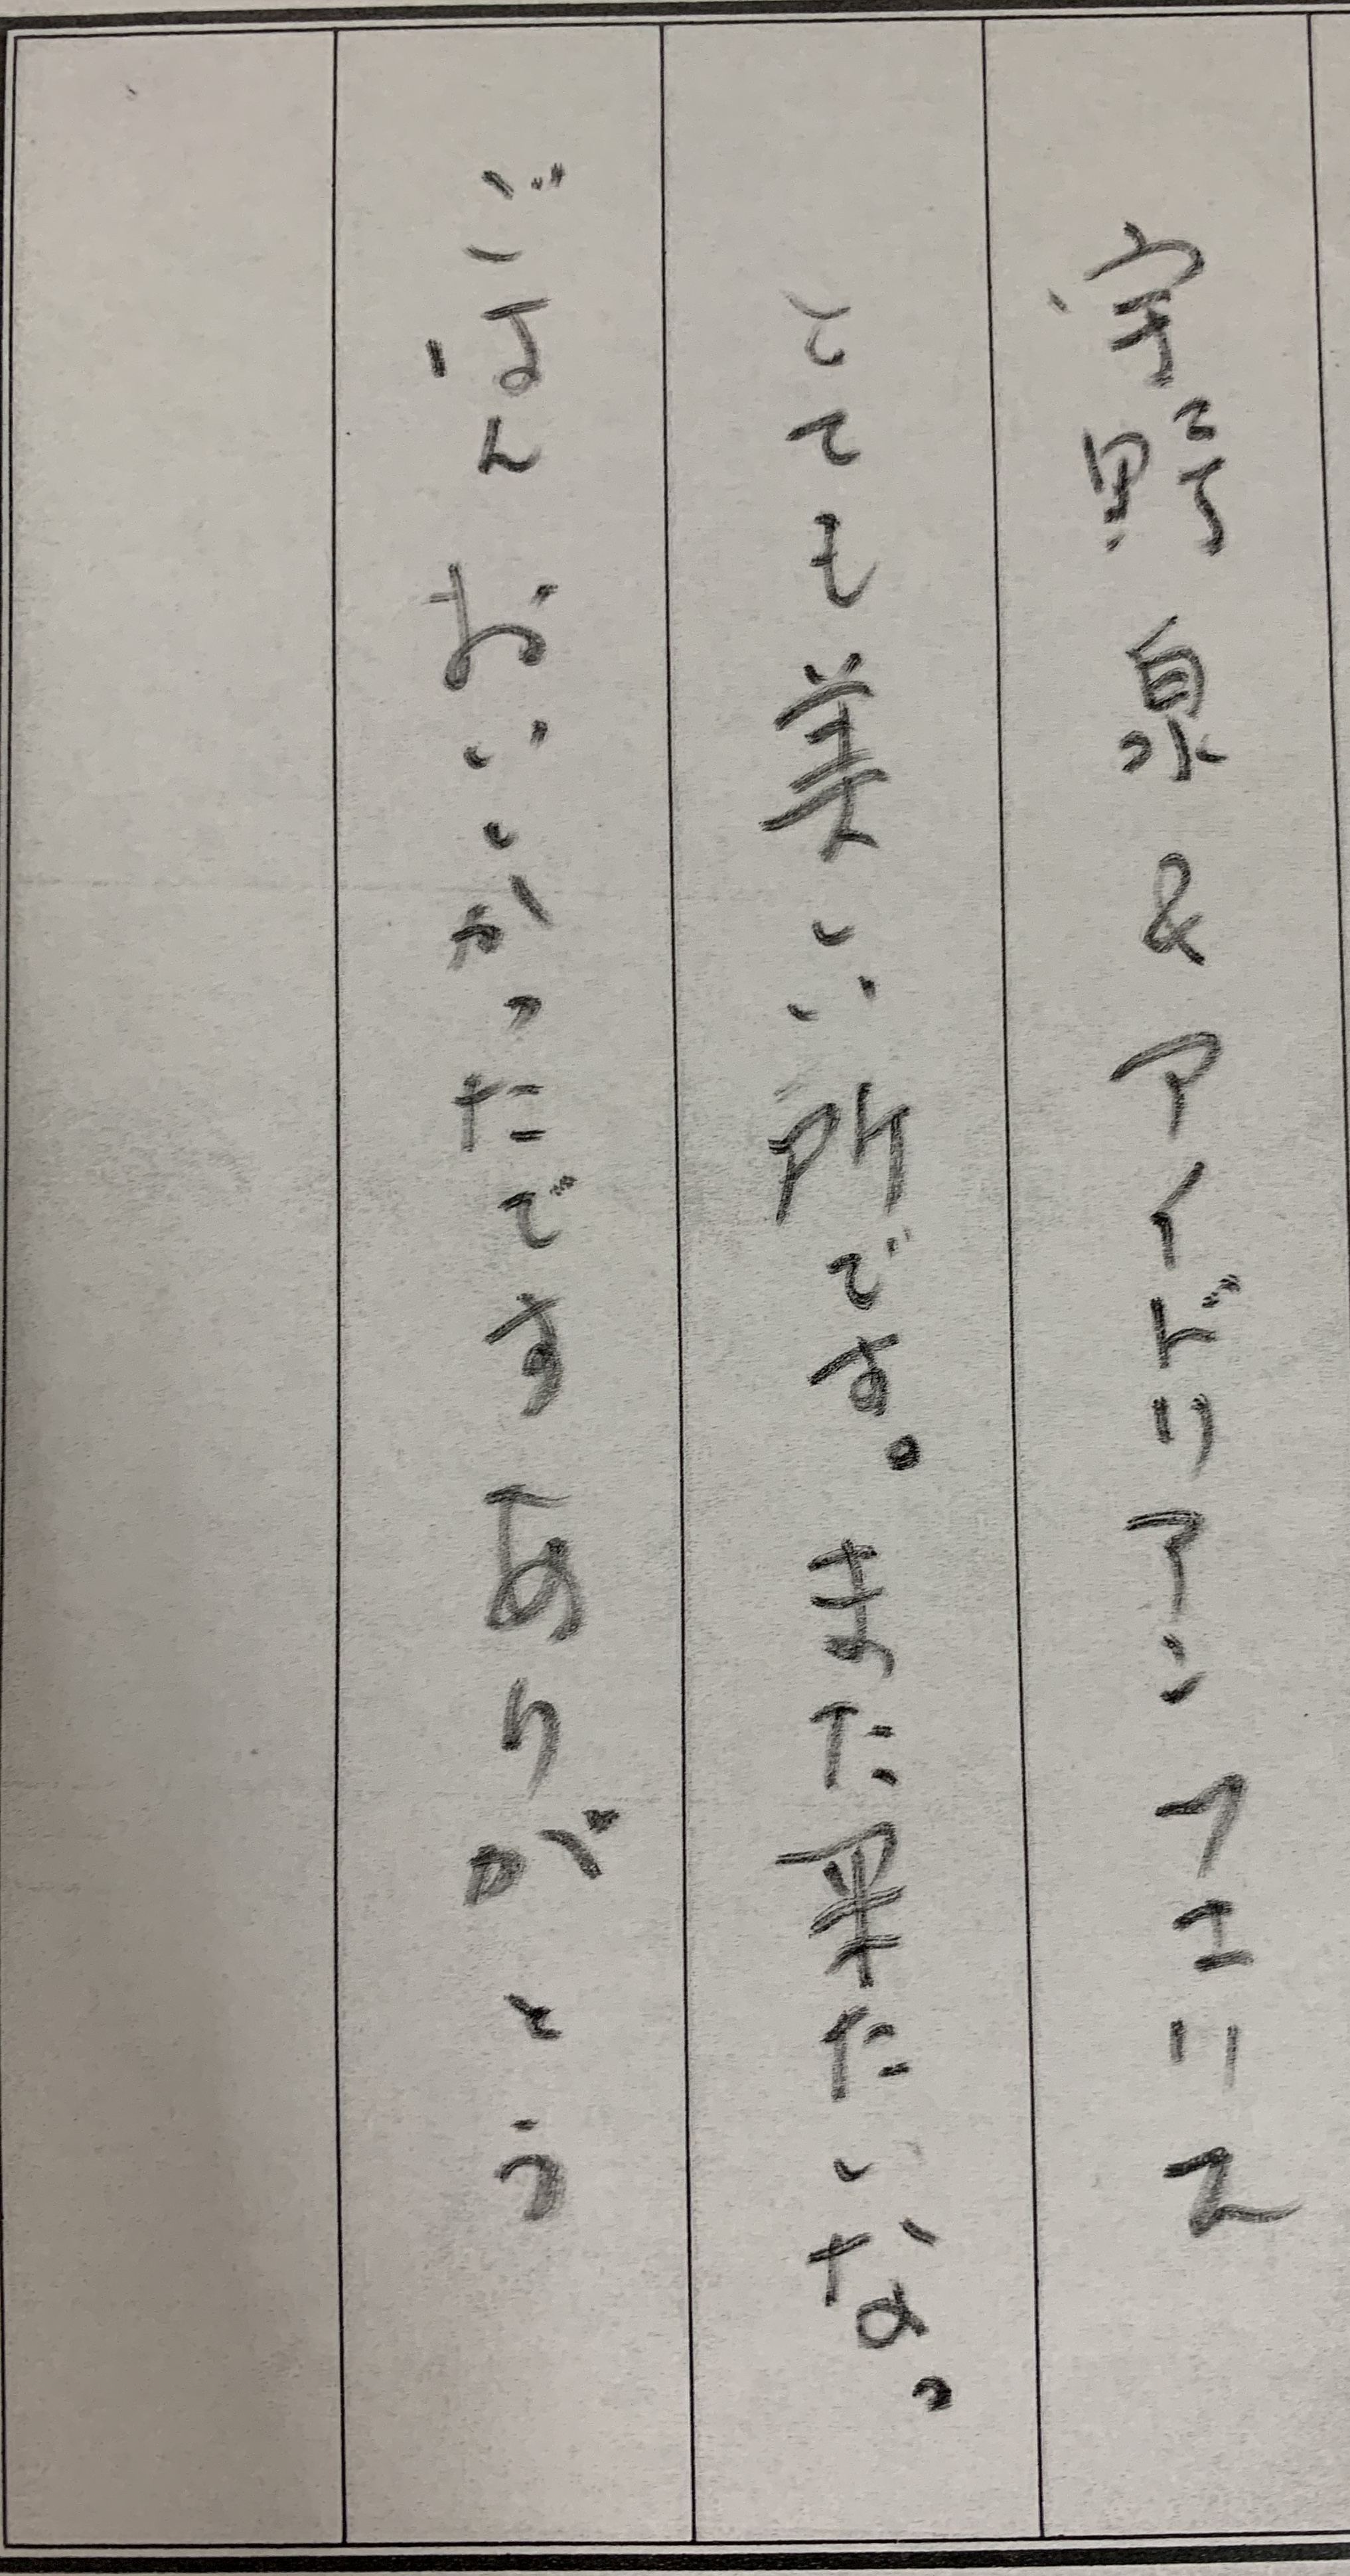 宇野 泉 & アイドリアン フエリス
とても美しい所です。また来たいな。
ごはん おいしかったです ありがとう